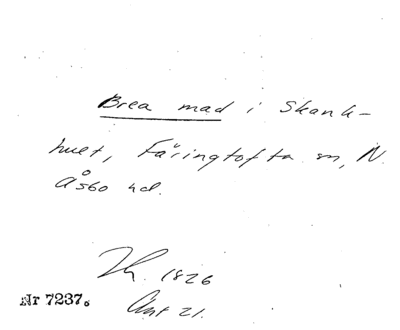 Brea mad i Skank-
hult, Färingtofta sn, N.
Åsbo hd.
1826
Ant 21.
Nr 7237.